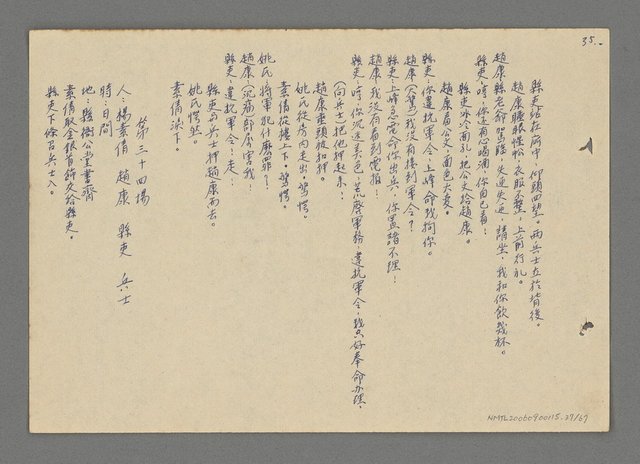 35.
縣吏站在廳中，仰頭四望。兩兵士立於背後。
趙康睡眼惺忪，衣服不整，上前行礼。
趙康：縣老爺駕臨，失迎失迎，請坐，我和你飲幾杯。
縣吏：哼，你还有心喝酒，你自已看！
縣吏冰冷面孔，把公文給趙康。
趙康看公文，面色大变。
縣吏：你違抗軍令，上峰命我拘你。
趙康：（大驚）我没有接到軍令？
縣吏：上峰急電命你出兵，你置諸不理！
趙康：我没有看到電報！
縣吏：哼，你沉迷美色，荒廢軍務，違抗軍令，我只好奉命办理，
（向兵士）把他押起来！
趙康垂頭被扣押。
姚氏從房内走出。驚愕。
素倩從樓上下。驚愕。
姚氏：將軍犯什麼罪！
趙康：（沉痛）部屬害我！
縣吏：違抗軍令！走！
縣吏与兵士押趙康而去。
姚氏愕然。
素倩淚下。
第三十四場
人：楊素倩　趙康　縣吏　兵士
時：日間
地：縣衙公堂書齋
素倩取金銀首飾交給縣吏。
縣吏下條召兵士入。
NMTL20060900115.37/67